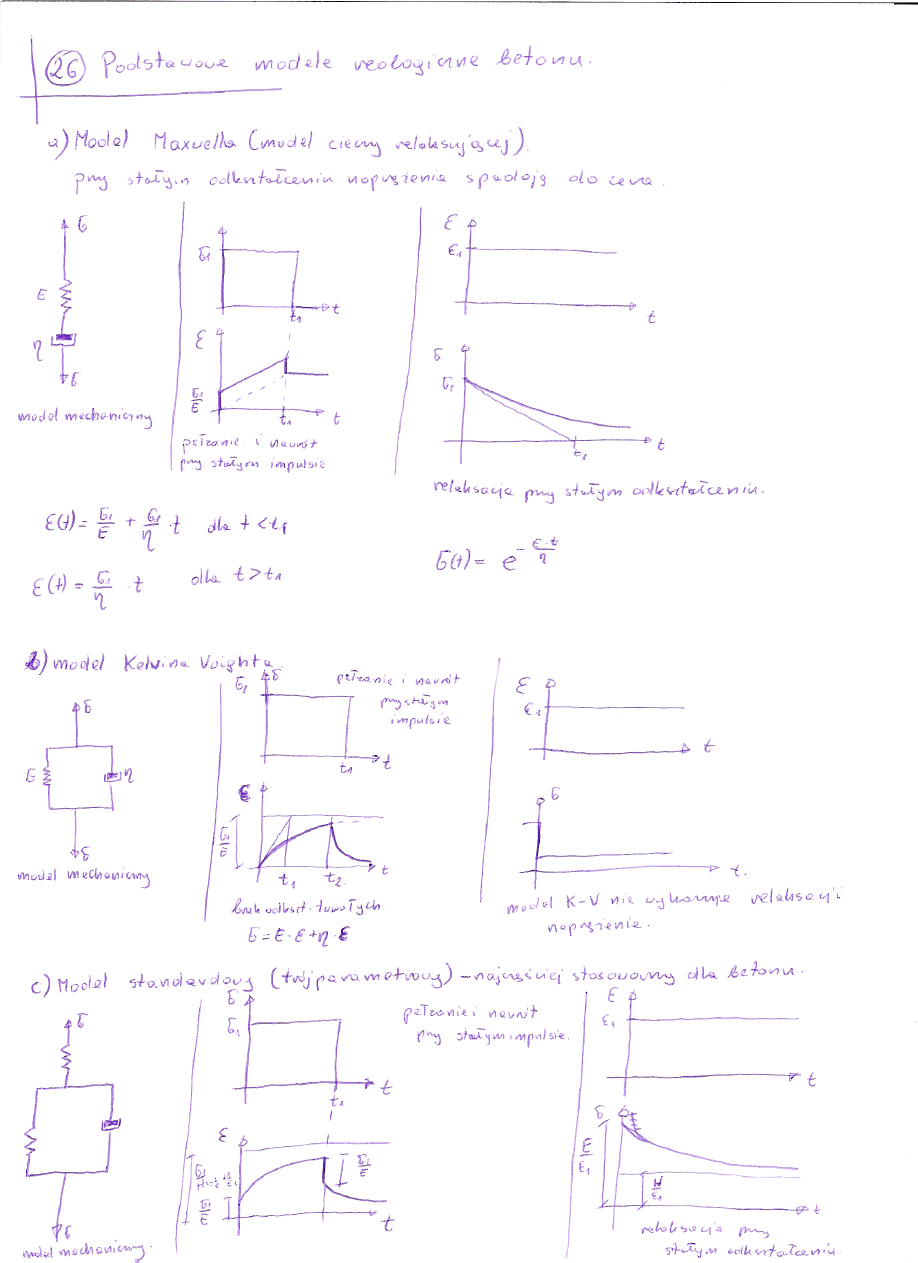 26 Podstawowe modele reologiczne betonu.
a) Model Maxwella (model cieczy relaksującej).
przy stałym odkształceniu naprężenia spadają do zera.
σ
E
η
σ
model mechaniczny
σ1
t1
t
ε
σ1/E
t1
t
pełzanie i nawrót
przy stałym impulsie
ε
ε1
t
σ
σ1
t1
t
relaksacja przy stałym odkształceniu.
ε(t) = σ1/E + σ1/η · t dla t < t1
ε(t) = σ1/η · t dla t > t1
σ(t) = e^(- E·t/η)
b) model Kelvina Voighta.
σ
E
η
σ
model mechaniczny
σ1
σ
t1
t
pełzanie i nawrót
przy stałym
impulsie
ε
t1
t2.
t
brak odkszt. trwałych
σ = E·ε + η·ε
ε
ε1
t
σ
t.
model K-V nie wykazuje relaksacji
naprężenie.
c) Model standardowy (trójparametrowy) – najczęściej stosowany dla betonu.
σ
σ
model mechaniczny.
σ
σ1
t1
t
pełzanie i nawrót
przy stałym impulsie.
ε
σ1/E
σ1/E
t
ε
ε1
t
σ
E/ε1
H/ε1
t
relaksacja przy
stałym odkształceniu.